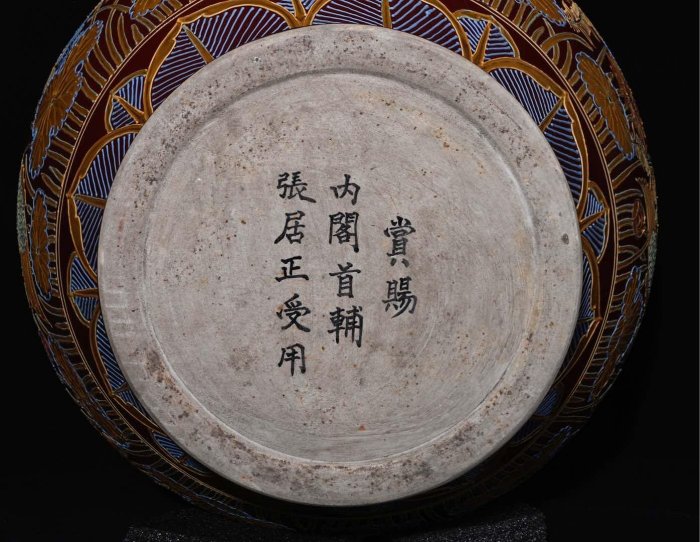 賞賜
內閣首輔
張居正受用